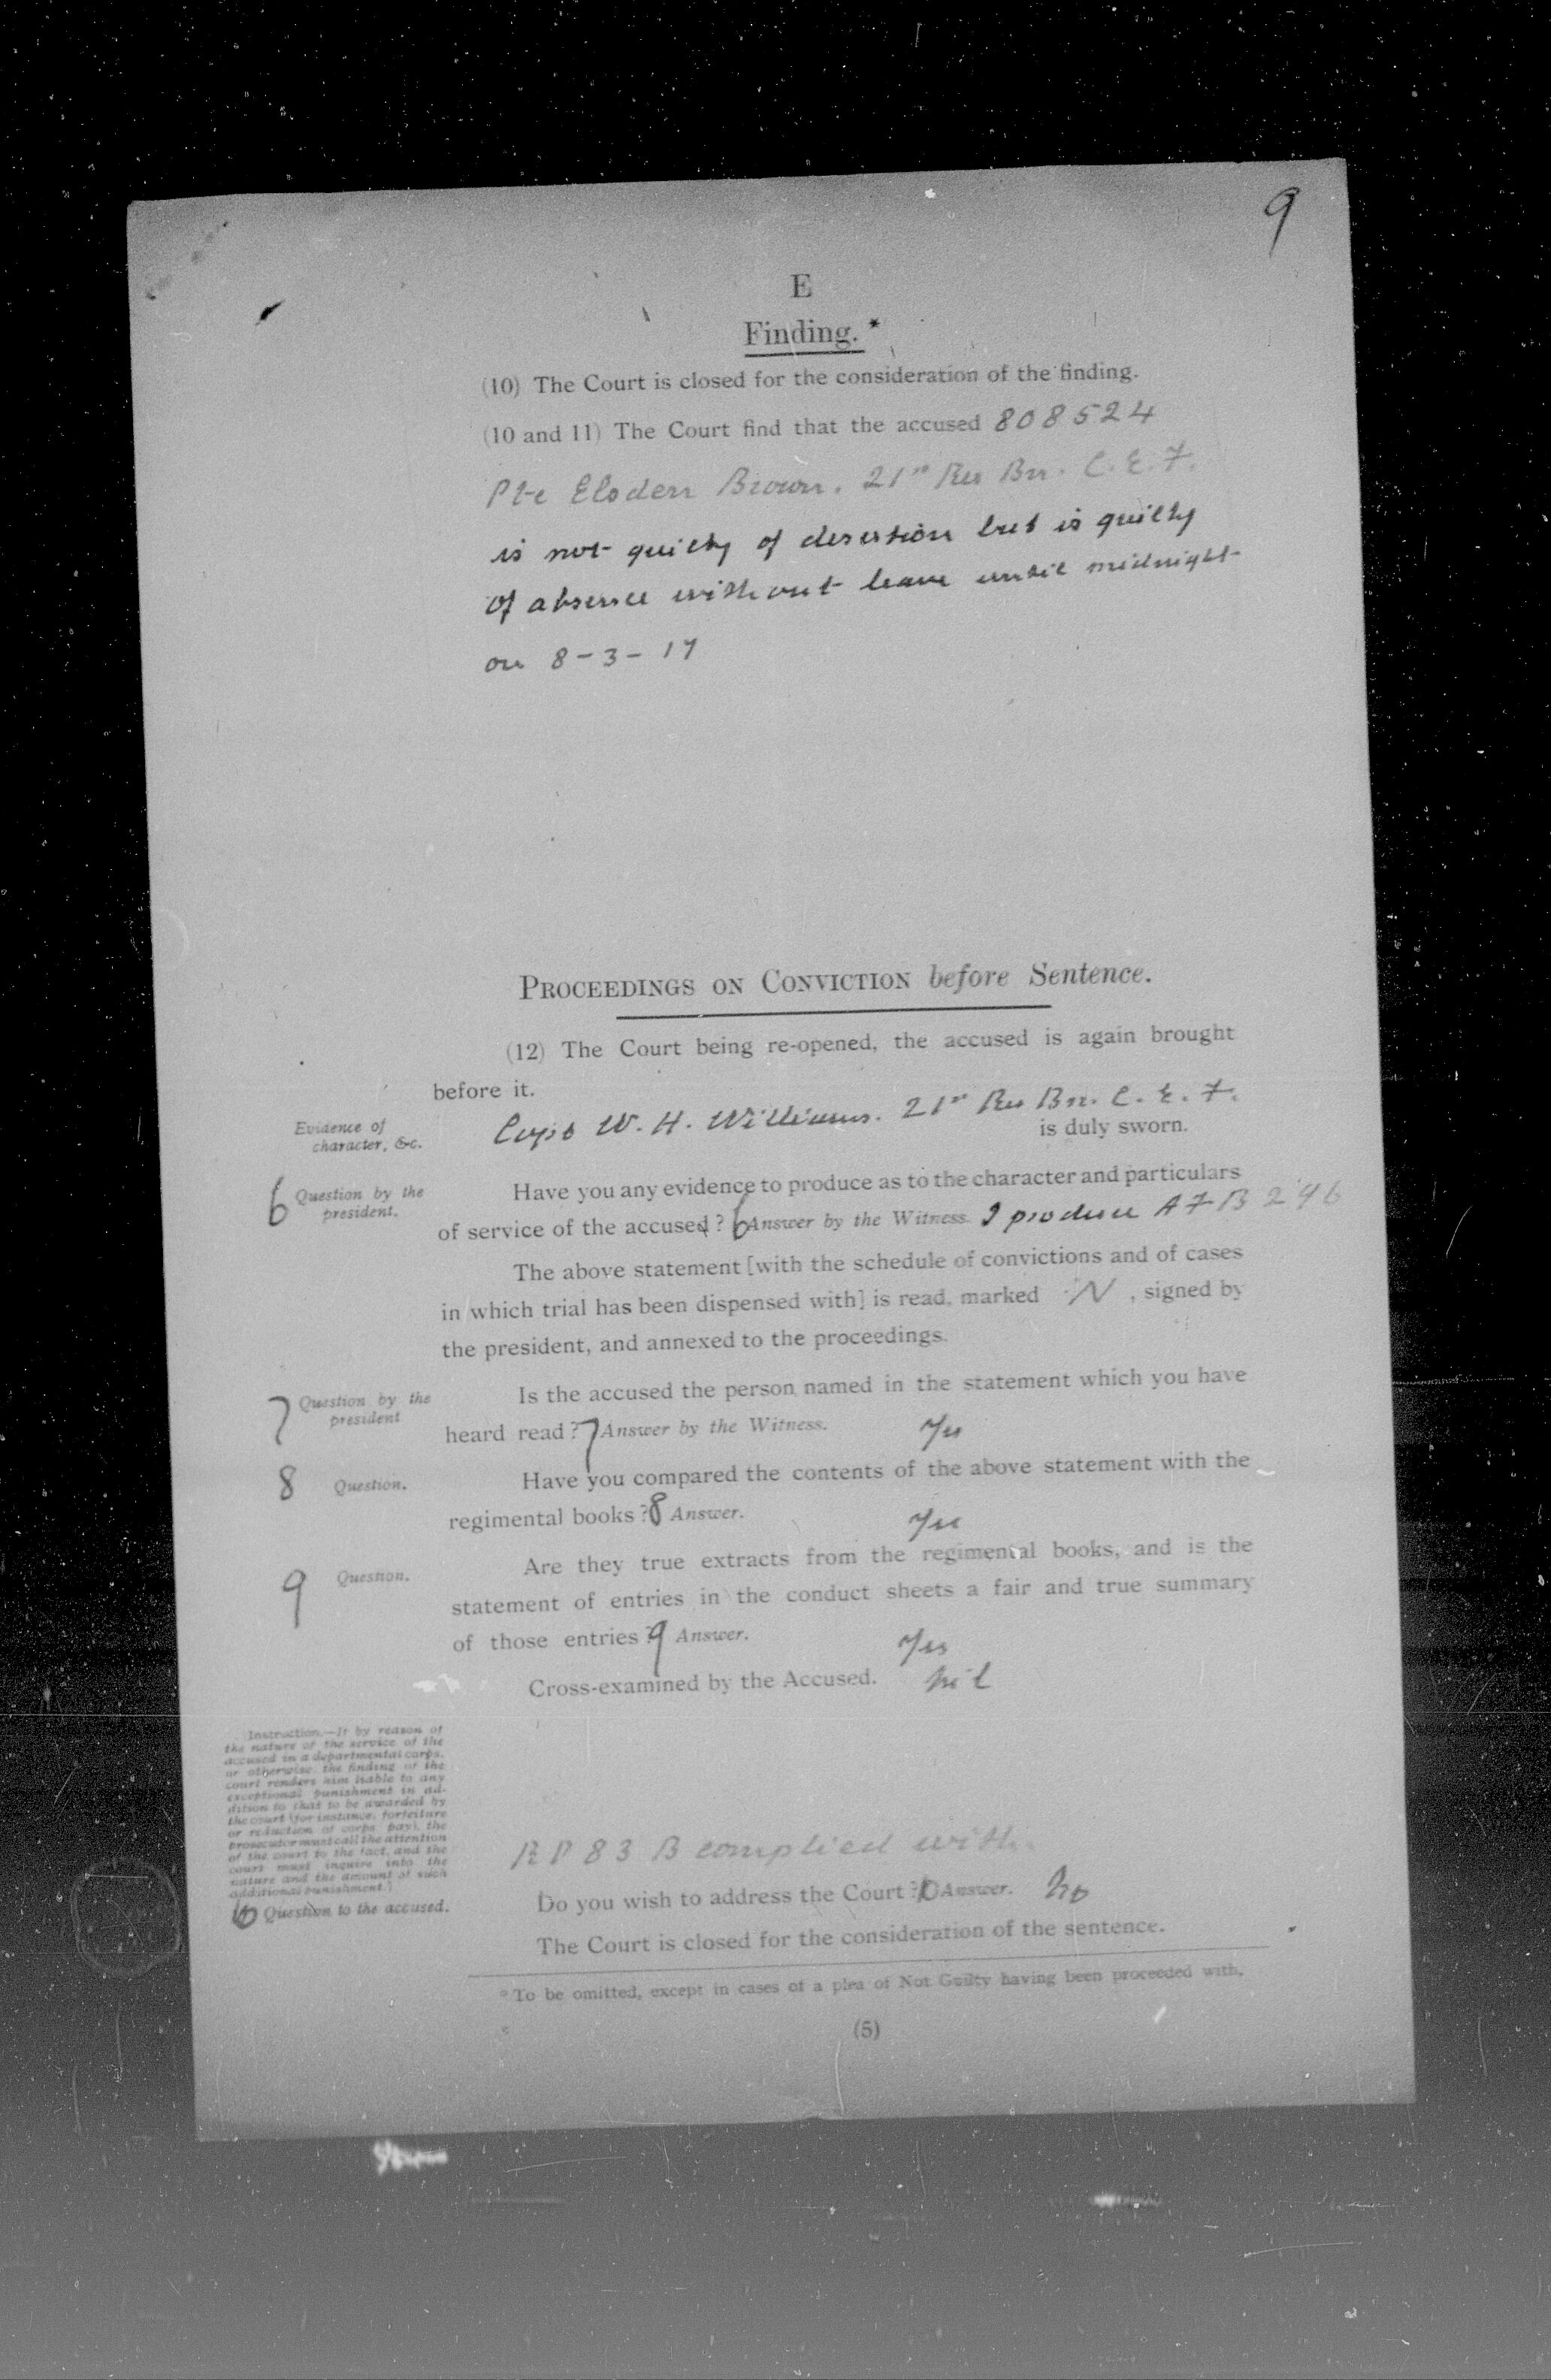 9
E
Finding.*
(10) The Court is closed for the consideration of the finding.
(10 and 11) The Court find that the accused 808524
Pte Elsden Brown. 21st Res Bn. C.E.F.
is not guilty of desertion but is guilty
of absence without leave until midnight
on 8-3-17
PROCEEDINGS ON CONVICTION before Sentence.
(12) The Court being re-opened, the accused is again brought
before it.
Evidence of
character, &c.
Capt W. H. Williams. 21st Res Bn. C. E. F.
is duly sworn.
6 Question by the
president.
Have you any evidence to produce as to the character and particulars
of service of the accused? 6 Answer by the Witness. I produce AFB 296
The above statement [with the schedule of convictions and of cases
in which trial has been dispensed with] is read, marked N, signed by
the president, and annexed to the proceedings.
7 Question by the
president
Is the accused the person named in the statement which you have
heard read? 7 Answer by the Witness. Yes
8 Question.
Have you compared the contents of the above statement with the
regimental books? 8 Answer. Yes
9 Question.
Are they true extracts from the regimental books, and is the
statement of entries in the conduct sheets a fair and true summary
of those entries? 9 Answer. Yes
Cross-examined by the Accused. Nil
Instruction.—If by reason of
the nature of the service of the
accused in a departmental corps,
or otherwise, the finding of the
court renders him liable to any
exceptional punishment in ad-
dition to that to be awarded by
the court (for instance, forfeiture
or reduction of corps pay), the
prosecutor must call the attention
of the court to the fact, and the
court must inquire into the
nature and the amount of such
additional punishment.]
RP 83 B complied with.
10 Question to the accused.
Do you wish to address the Court? 10 Answer. No
The Court is closed for the consideration of the sentence.
* To be omitted, except in cases of a plea of Not Guilty having been proceeded with.
(5)